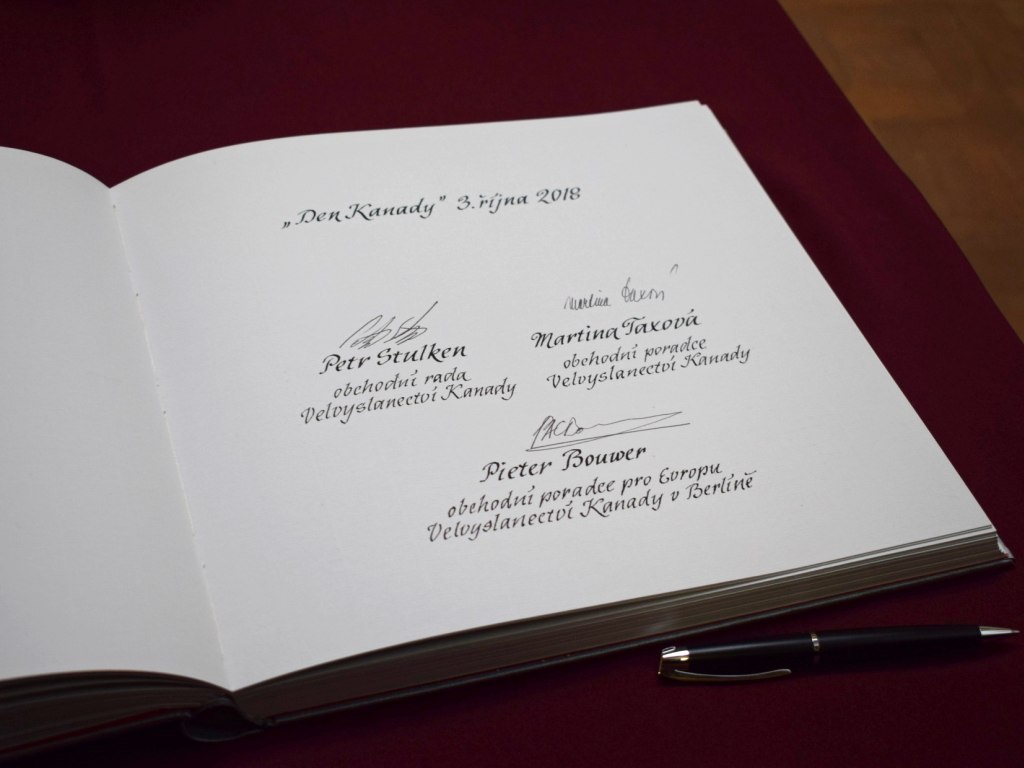 „Den Kanady" 3. října 2018
Martina Taxov
Petr Stulken
obchodní rada
Velvyslanectví Kanady
Martina Taxová
obchodní poradce
Velvyslanectví Kanady
Pieter Bouwer
obchodní poradce pro Evropu
Velvyslanectví Kanady v Berlíně